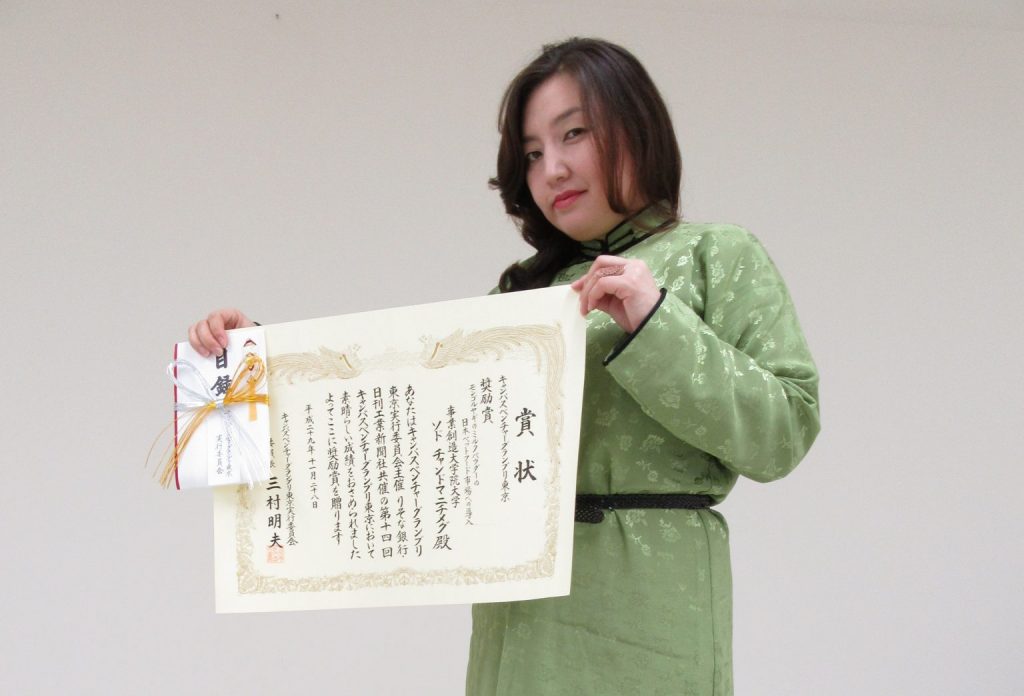 賞状
キャンパスベンチャーグランプリ東京
奨励賞
モンゴルヤギのミルクパウダーの
日本ペットフード市場への導入
事業創造大学院大学
ソド チャンドマニチメグ 殿
あなたはキャンパスベンチャーグランプリ
東京実行委員会主催 りそな銀行・
日刊工業新聞社共催の第十四回
キャンパスベンチャーグランプリ東京において
素晴らしい成績をおさめられました
よってここに奨励賞を贈ります
平成二十九年十一月二十八日
キャンパスベンチャーグランプリ東京実行委員会
委員長 三村明夫
目録
実行委員会